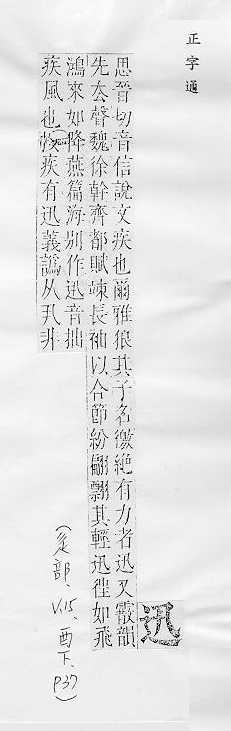 正字通
迅
思晉切音信說文疾也爾雅狼其子名獥絕有力者迅又霰韻
先去聲魏徐幹齊都賦竦長袖以合節紛翩翻其輕迅徃如飛
鴻來如降燕篇海別作迅音拙
疾風也疾有迅義譌从卂非
(辵部、V.15、酉下、P37)